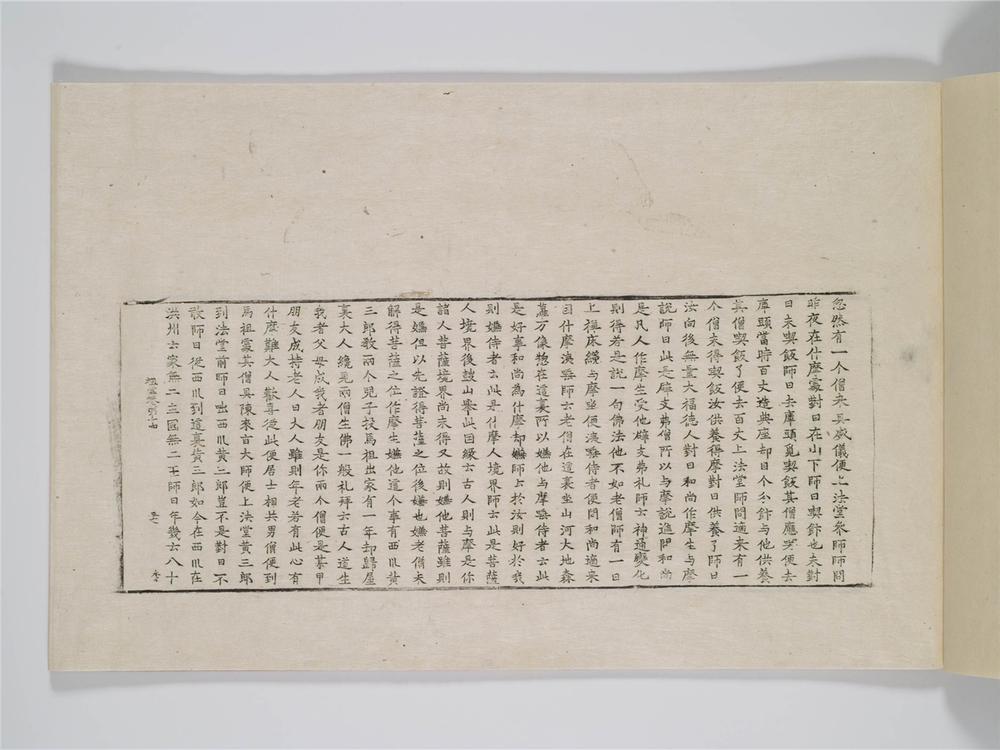 忽然有一个僧来具威儀便上法堂參師師問
昨夜在什摩處對曰在山下師曰喫飰也未對
曰未喫飯師曰去庫頭覓喫飯其僧應喏便去
庫頭當時百丈造典座却自个分飰与他供養
其僧喫飯了便去百丈上法堂師問適来有一
个僧未得喫飯汝供養得摩對曰供養了師曰
汝向後無量大福德人對曰和尚作摩生与摩
說師曰此是辟支弗僧所以与摩說進問和尚
是凡人作摩生受他辟支弗礼師云神通變化
則得若是說一句佛法他不如老僧師有一日
上禪床纔与摩坐便涕唾侍者便問和尚適来
因什摩涕唾師云老僧在這裏坐山河大地森
蘿万像惣在這裏所以嫌他与摩唾侍者云此
是好事和尚為什摩却嫌師云於汝則好於我
則嫌侍者云此是什摩人境界師云此是菩薩
人境界後鼓山舉此因緣云古人則与摩是你
諸人菩薩境界尚未得又故則嫌他菩薩雖則
是嫌但以先證得菩薩之位後嫌也嫌老僧未
解得菩薩之位作摩生嫌他這个事有西川黃
三郎教兩个兒子投馬祖出家有一年却歸屋
裏大人纔見兩僧生佛一般礼拜云古人道生
我者父母成我者朋友是你兩个僧便是某甲
朋友成持老人曰大人雖則年老若有此心有
什麽難大人歡喜從此便居士相共男僧便到
馬祖處其僧具陳來旨大師便上法堂黃三郎
到法堂前師曰咄西川黃三郎豈不是對曰不
敢師曰從西川到這裏黃三郎如今在西川在
洪州云家無二主國無二王師曰年幾云八十